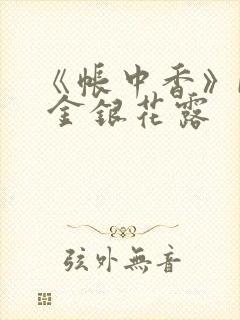 《帳中香》
金銀花露
弦外無音